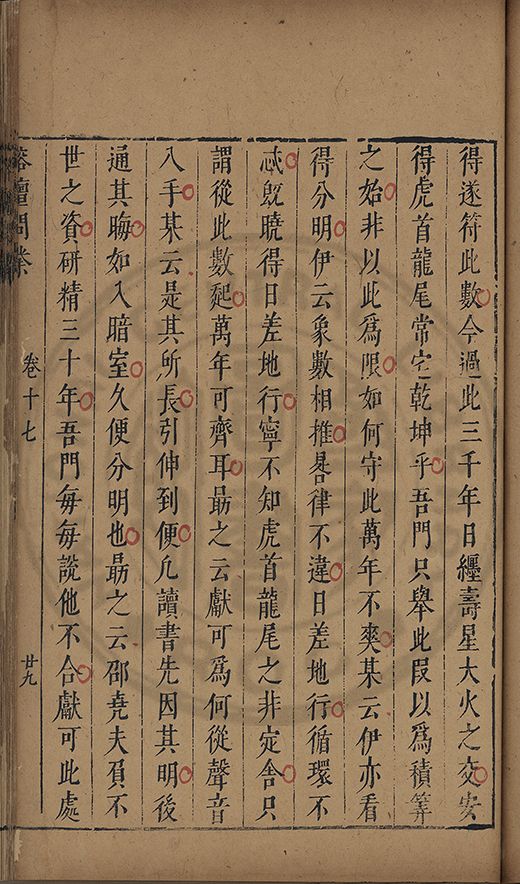 得遂符此數今過此三千年日纏壽星大火之交安
得虎首龍尾常定乾坤乎吾門只舉此叚以爲積筭
之始非以此爲限如何守此萬年不爽某云伊亦看
得分明伊云象數相推晷律不違日差地行循環不
忒既曉得日差地行寧不知虎首龍尾之非定舎只
謂從此數起萬年可齊耳勗之云獻可爲何從聲音
入手某云是其所長引伸到便凢讀書先因其明後
通其晦如入暗室久便分明也勗之云邵堯夫負不
世之資研精三十年吾門每每說他不合獻可此處
榕壇問業
卷十七
廿九